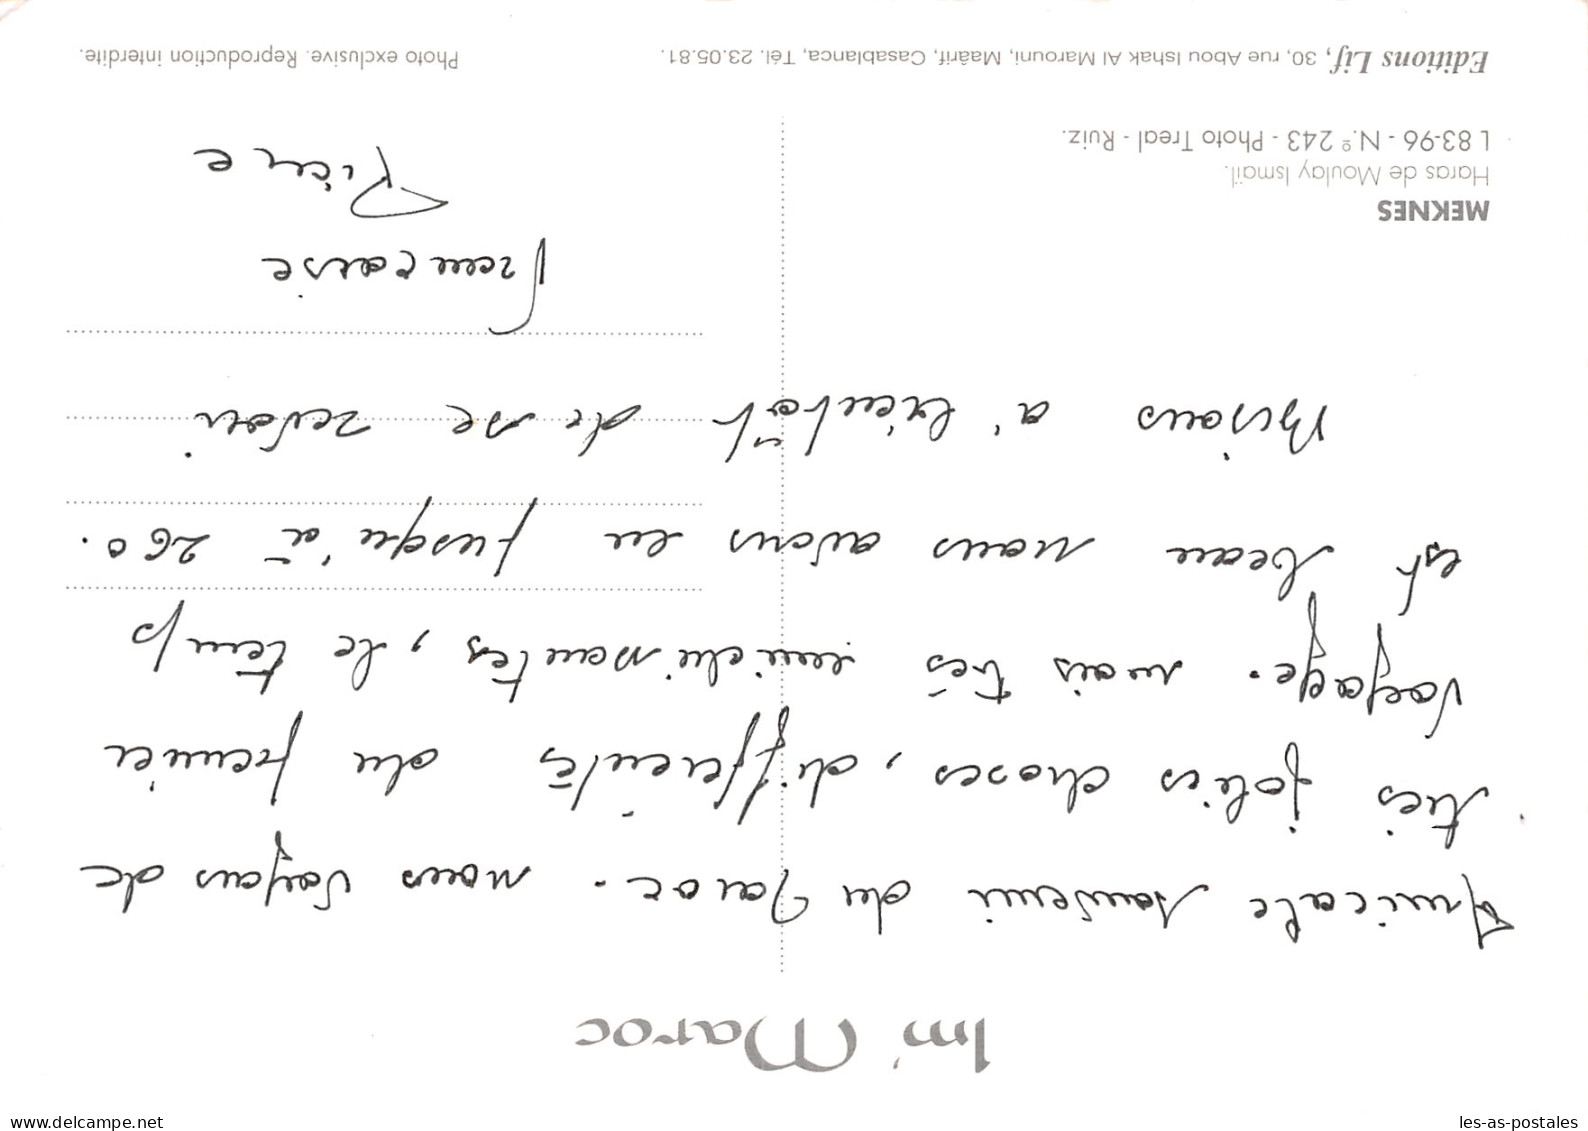 Im'Maroc
Amicale souvenir du Maroc. nous voyons de
très jolies choses, différentes du premier
voyage. mais très intéressantes, le temps
est beau nous avons eu jusqu'à 26°.
Bisous à bientôt de se revoir
Francoise
Pierre
MEKNES
Haras de Moulay Ismaïl.
L 83-96 - N.º 243 - Photo Treal - Ruiz.
Editions Lif, 30, rue Abou Ishak Al Marouni, Maârif, Casablanca, Tél. 23.05.81.
Photo exclusive. Reproduction interdite.
www.delcampe.net
les-as-postales